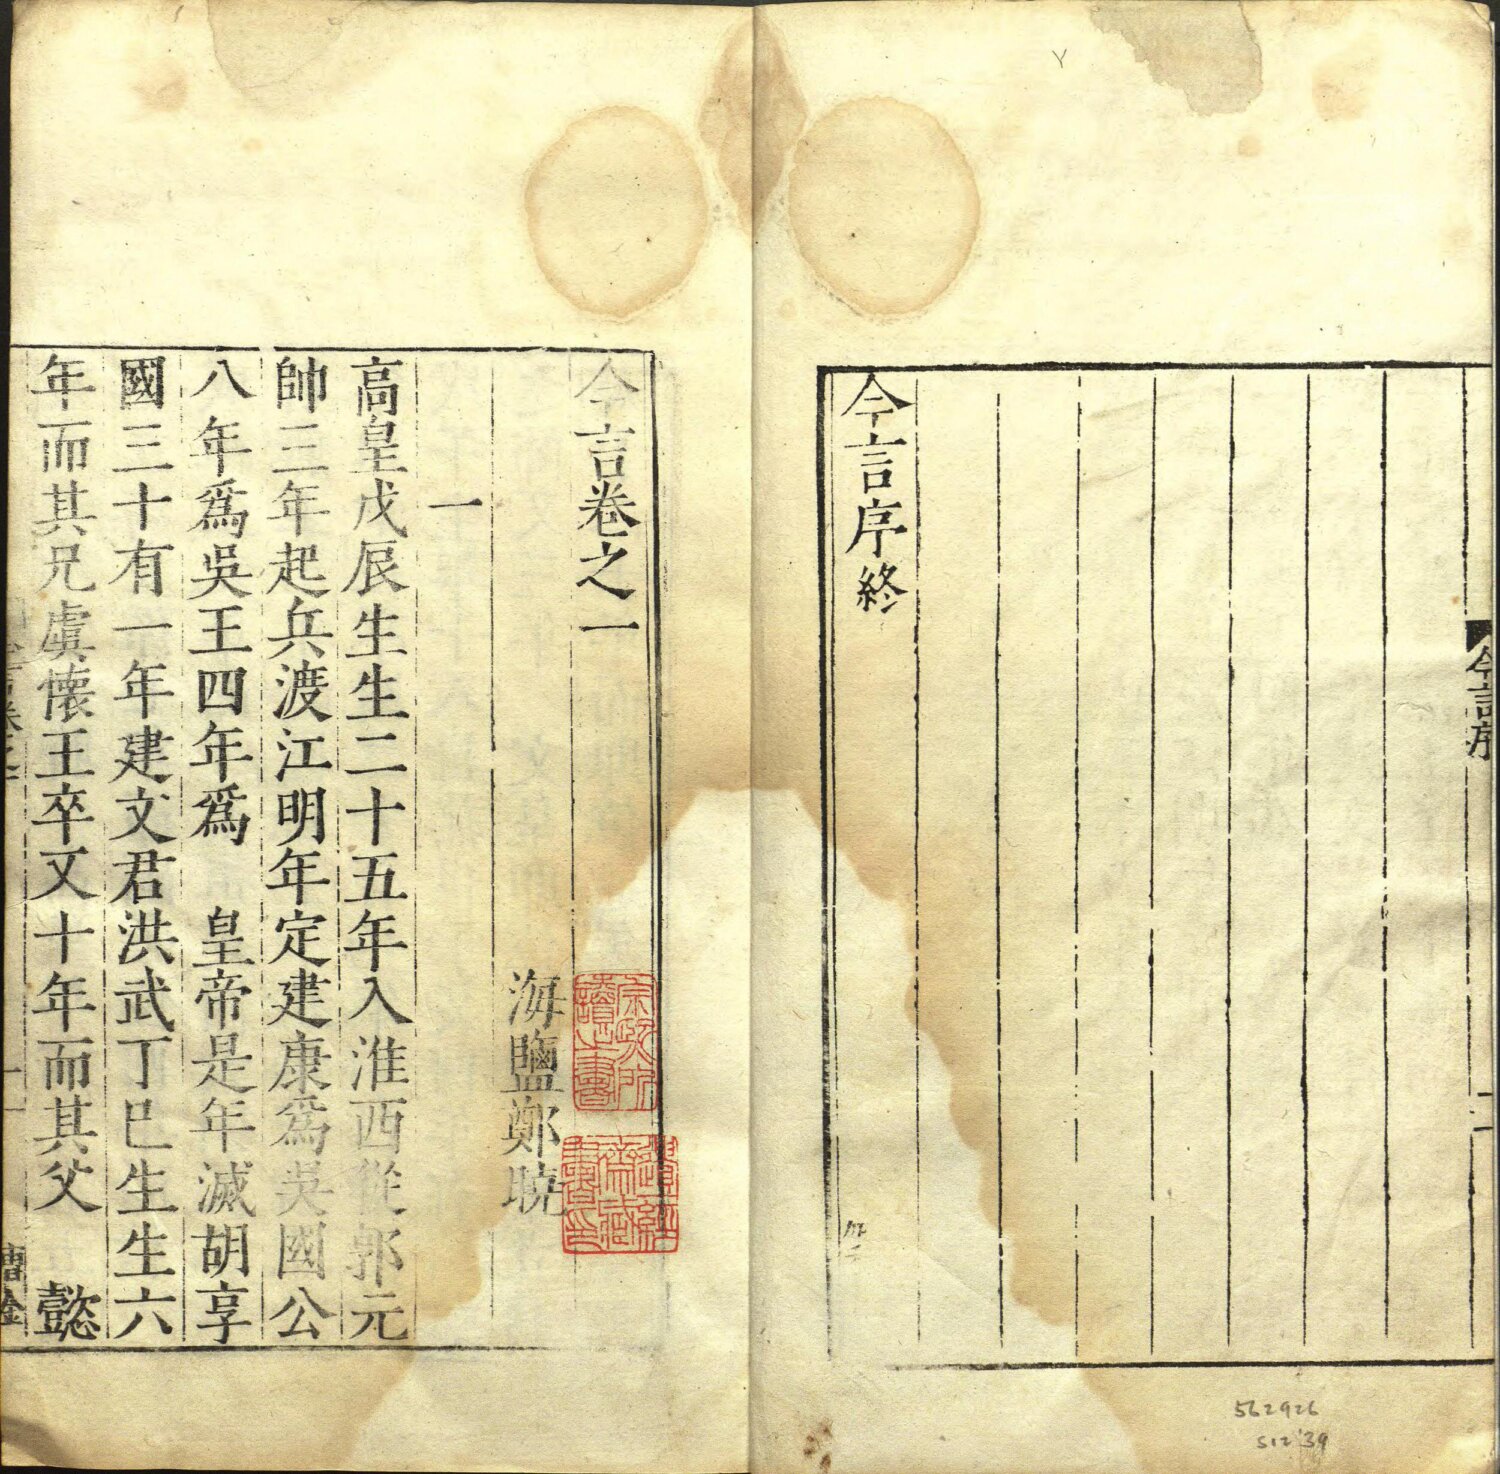 今言序終
今言序
二
562926
S12'39
今言卷之一
海鹽鄭曉
一
高皇戊辰生生二十五年入淮西從郭元
帥三年起兵渡江明年定建康爲吳國公
八年爲吳王四年爲 皇帝是年滅胡享
國三十有一年建文君洪武丁巳生生六
年而其兄虞懷王卒又十年而其父 懿
一
曹金